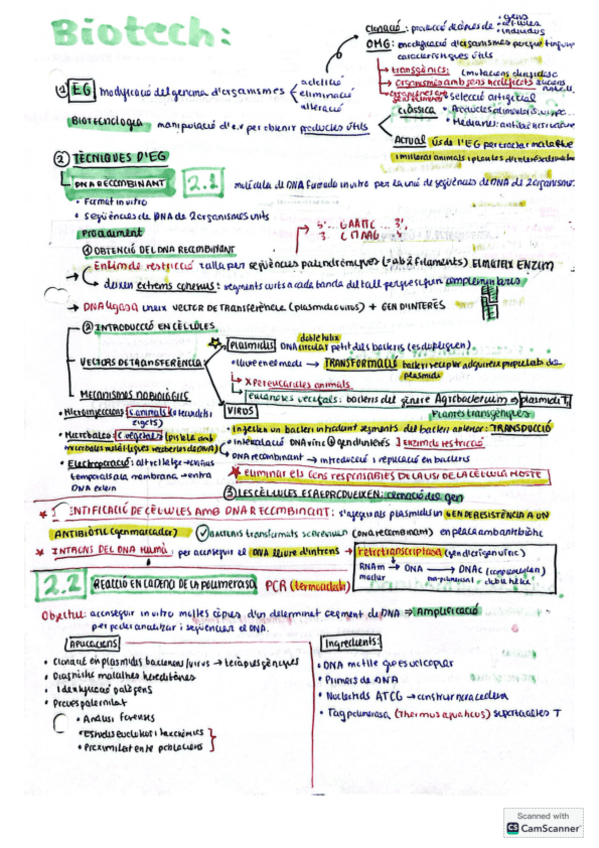 Biotech:
Clonació: producció de clons de • gens • cèl·lules • individus
OMG: modificació d'organismes perquè tinguin característiques útils
→ transgènics:
→ organismes amb gens
selecció artificial
① EG modificació del genoma d'organismes addició eliminació alteració
BIOTECNOLOGIA manipulació d'e.v per obtenir productes útils
Clàssica • Productes alimentaris
• Medicaments:
Actual ús de l'EG per tractar malalties
i millorar animals i plantes d'interès
② TÈCNIQUES D'EG
DNA RECOMBINANT 2.1 molècula de DNA formada in vitro per la unió de seqüències de DNA de 2 organismes.
• Format in vitro
• Seqüències de DNA de 2 organismes units
Procediment
5'... GAATTC ... 3'
3' CTTAAG 5'
① OBTENCIÓ DEL DNA RECOMBINANT
Enzim de restricció talla per seqüències palindròmiques (=ab 2 filaments) EL MATEIX ENZIM
→ deixen extrems cohesius: segments curts a cada banda del tall perquè siguin complementaris
→ DNA ligasa uneix VECTOR DE TRANSFERÈNCIA (plasmidi o virus) + GEN D'INTERÈS
② INTRODUCCIÓ EN CÈL·LULES
VECTORS DE TRANSFERÈNCIA
PLASMIDIS DNA doble hèlix circular petit dels bacteris (es dupliquen)
• lliure en el medi → TRANSFORMACIÓ bacteri receptor adquireix propietats de plasmidi
↳ X per eucariotes animals
↳ eucariotes vegetals: bacteris del gènere Agrobacterium → plasmidi Ti
Plantes transgèniques
MECANISMES NO BIOLÒGICS
• Microinjeccions: C. animals
• Microbales: C. vegetals
• Electroporació: alt voltatge → canvis
temporals a la membrana → entra
DNA extern
VIRUS
• Ingecten un bacteri introduint segments del bacteri anterior: TRANSDUCCIÓ
• Intercalació DNA víric @ gen d'interès } enzim de restricció
↳ DNA recombinant → introducció i replicació en bacteris
★ Eliminar els gens responsables de la lisi de la cèl·lula hoste
③ LES CÈL·LULES ES REPRODUEIXEN: clonació del gen
★ IDENTIFICACIÓ DE CÈL·LULES AMB DNA RECOMBINANT: s'afegeix als plasmidis un GEN DE RESISTÈNCIA A UN
ANTIBIÒTIC (gen marcador) ✓ Bacteris transformats sobreviuen (DNA recombinant) en placa amb antibiòtic
★ INTRONS DEL DNA HUMÀ: per aconseguir el DNA lliure d'introns → retrotranscriptasa (gen d'origen víric)
RNAm → DNA → DNAc (complementari)
madur monocatenari doble hèlix
2.2 REACCIÓ EN CADENA DE LA POLIMERASA PCR (termociclador)
Objectiu: aconseguir in vitro moltes còpies d'un determinat segment de DNA → Amplificació
per poder analitzar i seqüenciar el DNA.
Aplicacions
• Clonació en plasmidis bacterians/virus → teràpies gèniques
• Diagnòstic malalties hereditàries
• Identificació patògens
• Proves paternitat
• Anàlisi forenses
• Estudis evolutius i taxonòmics
• Proximitat entre poblacions
Ingredients:
• DNA motlle que es vol copiar
• Primers de DNA
• Nucleòtids ATCG → construir nova cadena
• Taq polimerasa (Thermus aquaticus) suporta altes T
Scanned with
CS CamScanner